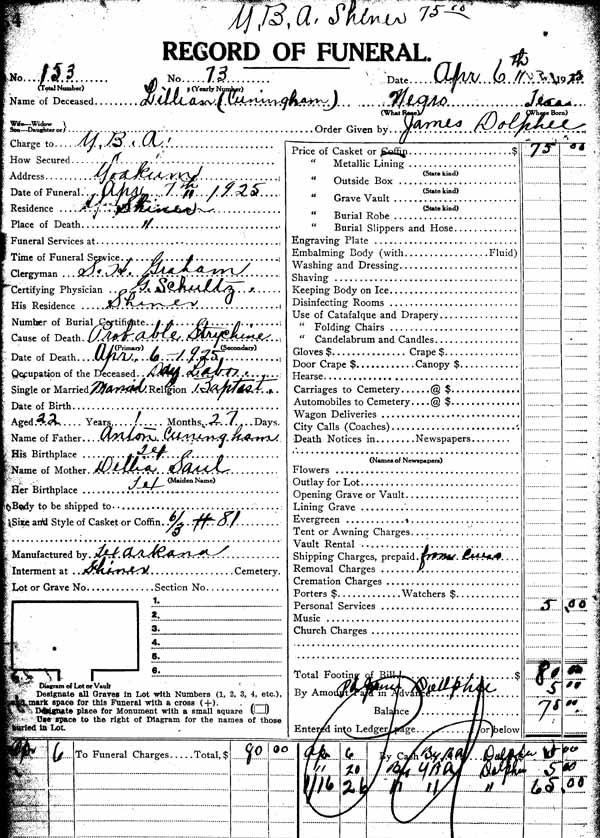 Y. B. A. Shiner 75 00
RECORD OF FUNERAL.
No. 153 No. 73 Date Apr 6th 1925
(Total Number) (Yearly Number)
Name of Deceased Lillian (Cuningham) Negro Texas
(What Race) (Where Born)
Wife—Widow
Son—Daughter or
Order Given by James Dolphee
Charge to Y. B. A.
How Secured
Address Yoakum
Date of Funeral Apr 7th 1925
Residence Shiner
Place of Death "
Funeral Services at
Time of Funeral Service
Clergyman Graham
Certifying Physician G. Schultz
His Residence Shiner
Number of Burial Certificate
Cause of Death Probable Strychine
(Primary) (Secondary)
Date of Death Apr. 6 1925
Occupation of the Deceased Day Labor
Single or Married Married Religion Baptest
Date of Birth
Aged 22 Years 1 Months, 27 Days.
Name of Father Anton Cuningham
His Birthplace Tex
Name of Mother Dellia Saul
(Maiden Name)
Her Birthplace Tex
Body to be shipped to
Size and Style of Casket or Coffin 6/3 # 81
Manufactured by Texarkana
Interment at Shiner Cemetery.
Lot or Grave No. Section No.
1.
2.
3.
4.
5.
6.
Diagram of Lot or Vault
Designate all Graves in Lot with Numbers (1, 2, 3, 4, etc.),
and mark space for this Funeral with a cross (+).
Designate place for Monument with a small square (□)
Use space to the right of Diagram for the names of those
buried in Lot.
Price of Casket or Coffin $ 75 .00
" Metallic Lining
(State kind)
" Outside Box
(State kind)
" Grave Vault
(State kind)
" Burial Robe
" Burial Slippers and Hose
Engraving Plate
Embalming Body (with Fluid)
Washing and Dressing
Shaving
Keeping Body on Ice
Disinfecting Rooms
Use of Catafalque and Drapery
" Folding Chairs
" Candelabrum and Candles
Gloves $ Crape $
Door Crape $ Canopy $
Hearse
Carriages to Cemetery @ $
Automobiles to Cemetery @ $
Wagon Deliveries
City Calls (Coaches)
Death Notices in Newspapers
(Names of Newspapers)
Flowers
Outlay for Lot
Opening Grave or Vault
Lining Grave
Evergreen
Tent or Awning Charges
Vault Rental
Shipping Charges, prepaid from Cuero
Removal Charges
Cremation Charges
Porters $ Watchers $
Personal Services 5 .00
Music
Church Charges
Total Footing of Bill 80 00
By Amount Paid in Advance James Dollphee 5 00
Balance 75 00
Entered into Ledger, page or below
Apr 6 To Funeral Charges Total, $ 80 00
Apr 6 By Cash By Y.B.A. Dolphee .00
" 20 By Y.B.A. Dolphee 5 00
1/16 26 " " " 65 00